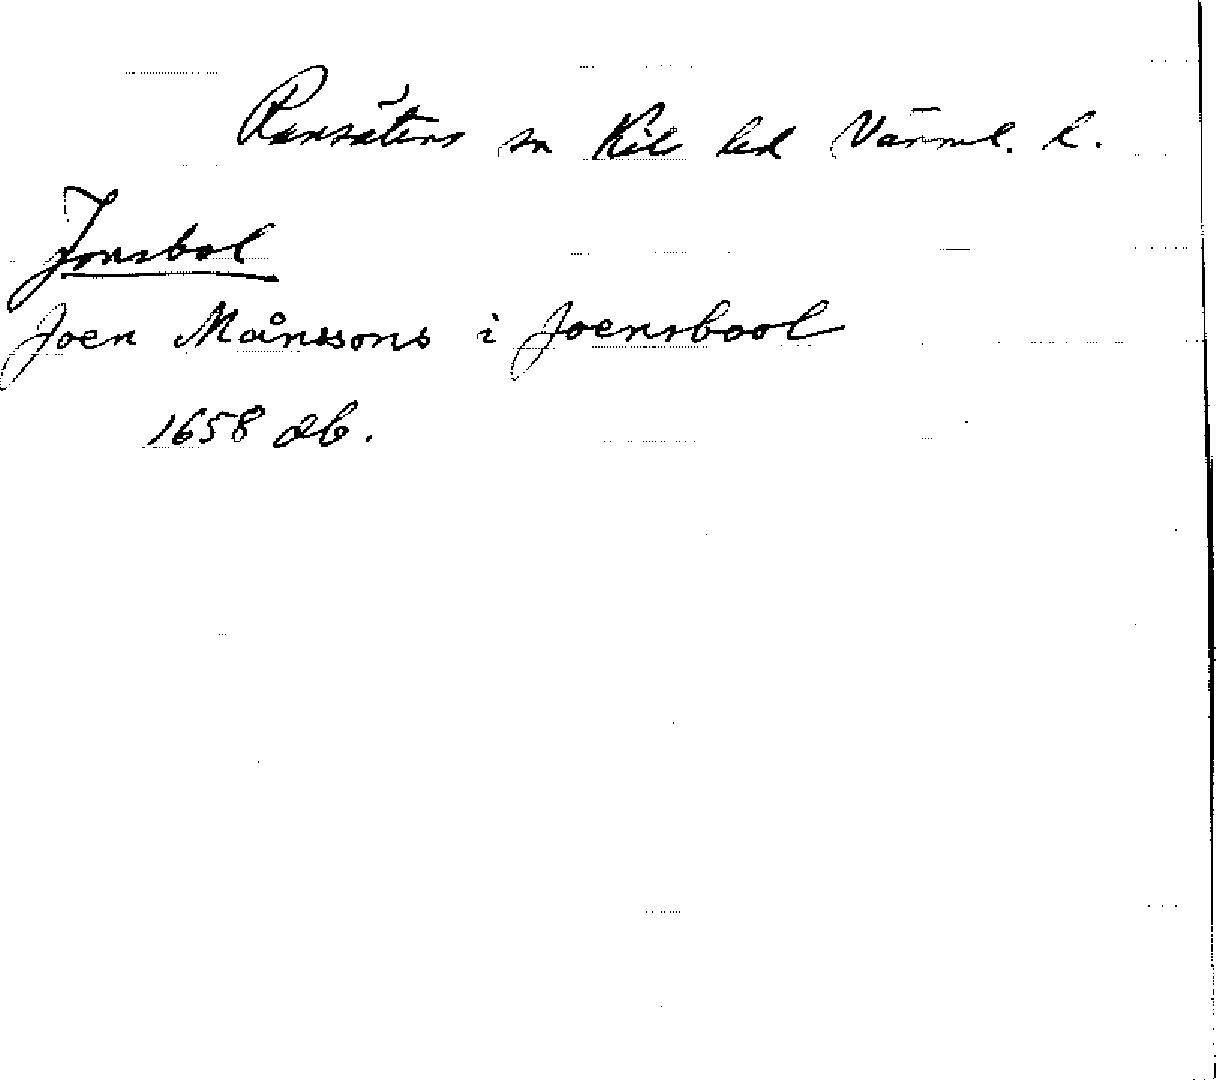 Ransäters sn Kil hd Värml. l.
Jonsbol
Joen Månssons i Joensbool
1658 db.